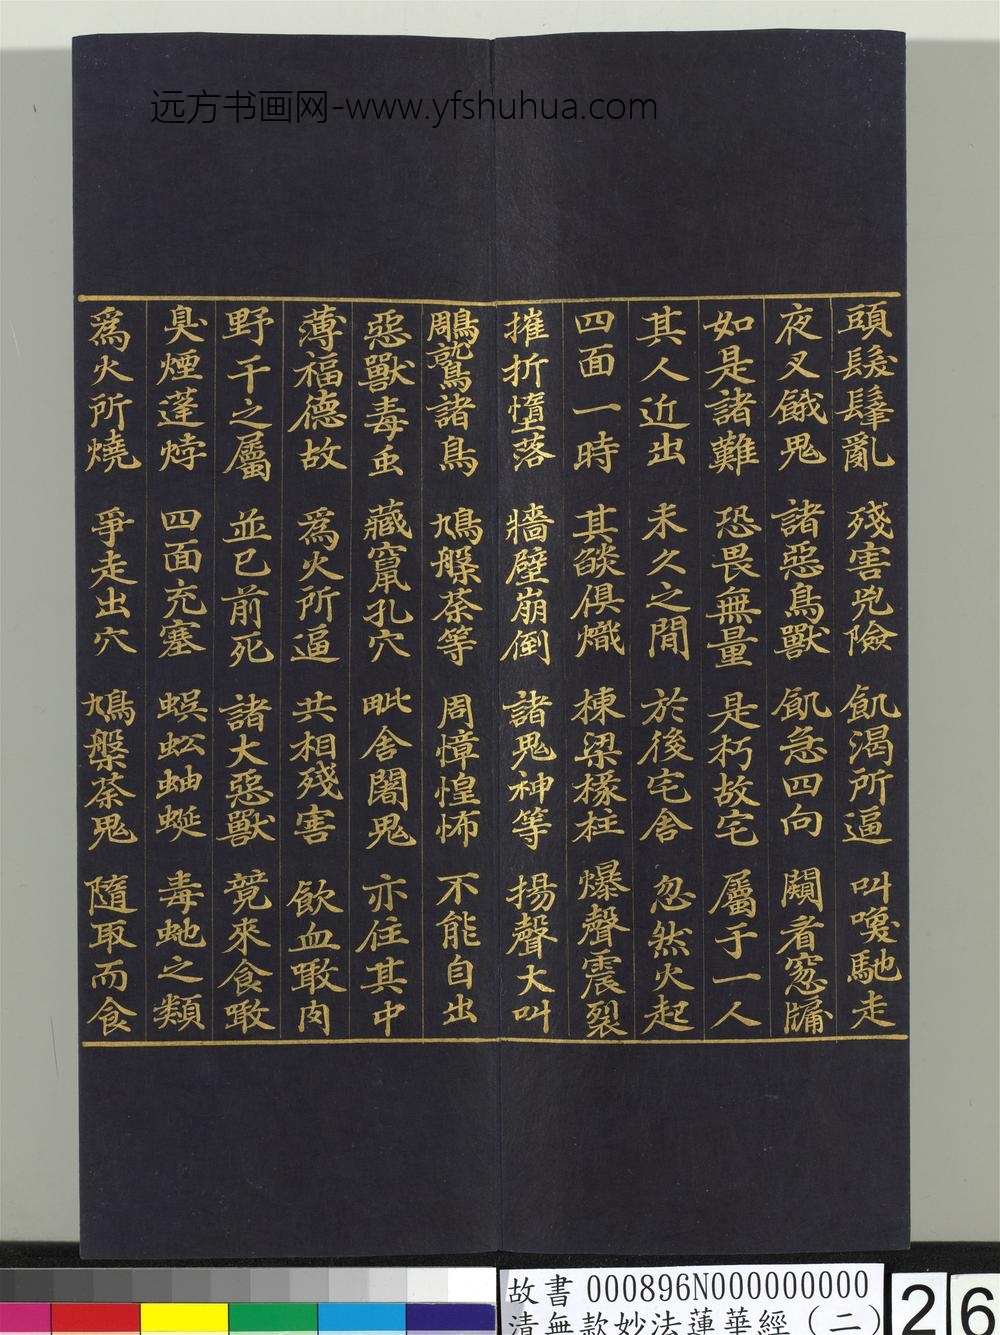 远方书画网-www.yfshuhua.com
頭髮髼亂 殘害兇險 飢渴所逼 叫喚馳走
夜叉餓鬼 諸惡鳥獸 飢急四向 闚看窓牖
如是諸難 恐畏無量 是朽故宅 屬于一人
其人近出 未久之間 於後宅舍 忽然火起
四面一時 其燄俱熾 棟梁椽柱 爆聲震裂
摧折墮落 牆壁崩倒 諸鬼神等 揚聲大叫
鵰鷲諸鳥 鳩槃荼等 周慞惶怖 不能自出
惡獸毒虫 藏竄孔穴 毗舍闍鬼 亦住其中
薄福德故 爲火所逼 共相殘害 飲血噉肉
野干之屬 並已前死 諸大惡獸 競來食噉
臭煙蓬㶿 四面充塞 蜈蚣蚰蜒 毒虵之類
爲火所燒 爭走出穴 鳩槃荼鬼 隨取而食
故書 000896N000000000
清無款妙法蓮華經（二）
26